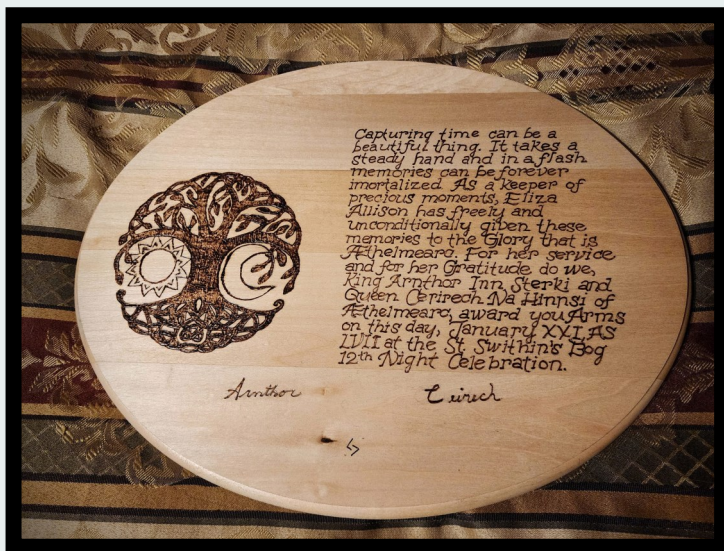 Capturing time can be a
beautiful thing. It takes a
steady hand and in a flash
memories can be forever
imortalized. As a keeper of
precious moments, Eliza
Allison has freely and
unconditionally given these
memories to the Glory that is
Æthelmearc. For her service
and for her Gratitude do we,
King Arnthor Inn Sterki and
Queen Ceirech Na Hinnsi of
Æthelmearc, award you Arms
on this day, January XXI, AS
LVII at the St. Swithin's Bog
12th Night Celebration.
Arnthor Ceirech